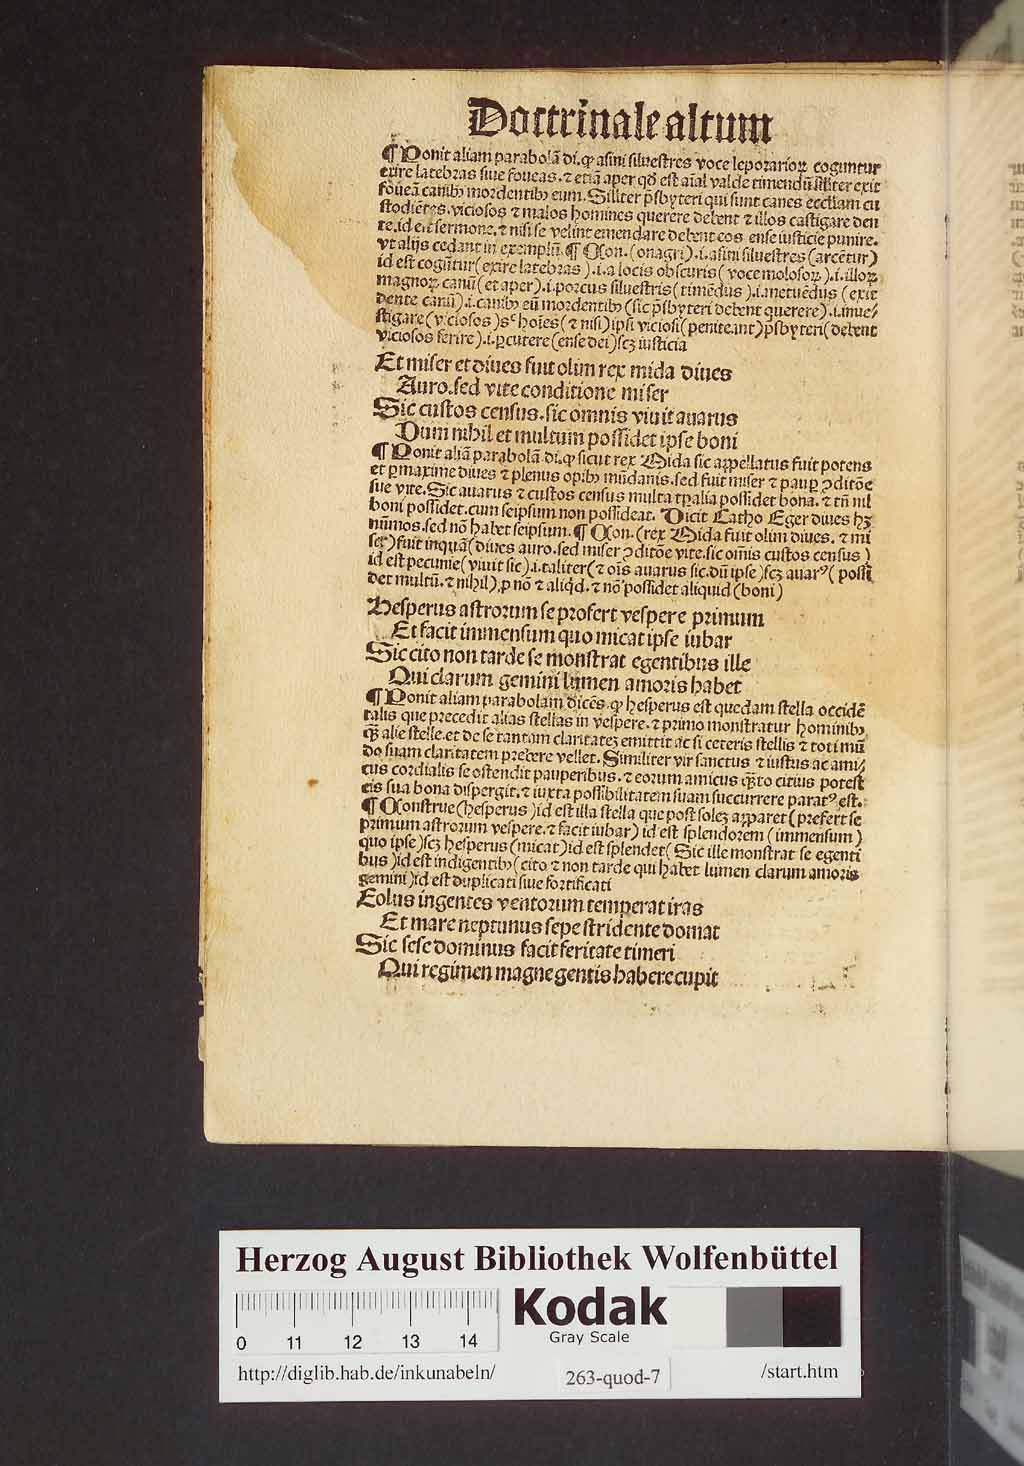 Doctrinale altum
¶ Ponit aliam parabolã di. ꝙ asini siluestres voce leporarioꝝ coguntur
exire latebras siue foueas. ⁊ etiã aper qđ est aĩal valde timendũ siĩliter exit
foueã canibꝰ mordentibꝰ eum. Siĩliter p̃sbyteri qui sunt canes eccl̃iam cu
stodiẽtes. viciosos ⁊ malos homines querere debent ⁊ illos castigare den
te. id est sermone. ⁊ nisi se velint emendare debent eos ense iusticie punire.
vt alijs cedant in exemplũ. ¶ Con. (onagri) .i. asini siluestres (arcẽtur)
id est cogũtur (exire latebras) .i. a locis obscuris (voce molosoꝝ) .i. illoꝝ
magnoꝝ canũ (et aper) .i. porcus siluestris (timẽdus) .i. metuẽdus (exit
dente canũ) .i. canibꝰ eũ mordentibꝰ (sic p̃sbyteri debent querere) .i. inue/
stigare (viciosos) sᶜ hoĩes (⁊ nisi) ip̃i viciosi (peniteant) p̃sbyteri (debent
viciosos ferire) .i. ꝑcutere (ense dei) scꝫ iusticia
Et miser et diues fuit olim rex mida diues
Auro. sed vite conditione miser
Sic custos census. sic omnis viuit auarus
Dum nihil et multum possidet ipse boni
¶ Ponit aliã parabolã di. ꝙ sicut rex Mida sic appellatus fuit potens
et ꝑmaxime diues ⁊ plenus opibꝰ mũdanis. sed fuit miser ⁊ pauꝑ ꝯditõe
sue vite. Sic auarus ⁊ custos census multa tp̃alia possidet bona. ⁊ tñ nil
boni possidet. cum seipsum non possideat. Dicit Catho Eger diues hꝫ
nũmos. sed nõ habet seipsum. ¶ Con. (rex Mida fuit olim diues. ⁊ mi
ser) fuit inquã (diues auro. sed miser ꝯditõe vite. sic om̃is custos census)
id est pecunie (viuit sic) .i. taliter (⁊ oĩs auarus sic. dũ ipse) scꝫ auarꝰ (possi
det multũ. ⁊ nihil), ꝓ nõ ⁊ aliqđ. ⁊ nõ possidet aliquid (boni)
Hesperus astrorum se profert vespere primum
Et facit immensum quo micat ipse iubar
Sic cito non tarde se monstrat egentibus ille
Qui clarum gemini lumen amoris habet
¶ Ponit aliam parabolam dicẽs. ꝙ hesperus est quedam stella occidẽ
talis que precedit alias stellas in vespere. ⁊ primo monstratur hominibꝰ
q̃ꝫ alie stelle. et de se tantam claritatẽ emittit ac si ceteris stellis ⁊ toti mũ
do suam claritatem prebere vellet. Similiter vir sanctus ⁊ iustus ac ami/
cus cordialis se ostendit pauperibus. ⁊ eorum amicus q̃ꝫto citius potest
eis sua bona dispergit. ⁊ iuxta possibilitatem suam succurrere paratꝰ est.
¶ Construe (hesperus) id est illa stella que post solẽ apparet (prefert se
primum astrorum vespere. ⁊ facit iubar) id est splendorem (immensum)
quo ipse) scꝫ hesperus (micat) id est splendet (Sic ille monstrat se egenti
bus) id est indigentibꝰ (cito ⁊ non tarde qui habet lumen clarum amoris
gemini) id est duplicati siue fortificati
Eolus ingentes ventorum temperat iras
Et mare neptunus sepe stridente domat
Sic sese dominus facit feritate timeri
Qui regimen magne gentis habere cupit
Herzog August Bibliothek Wolfenbüttel
0 11 12 13 14
Kodak
Gray Scale
http://diglib.hab.de/inkunabeln/ 263-quod-7 /start.htm